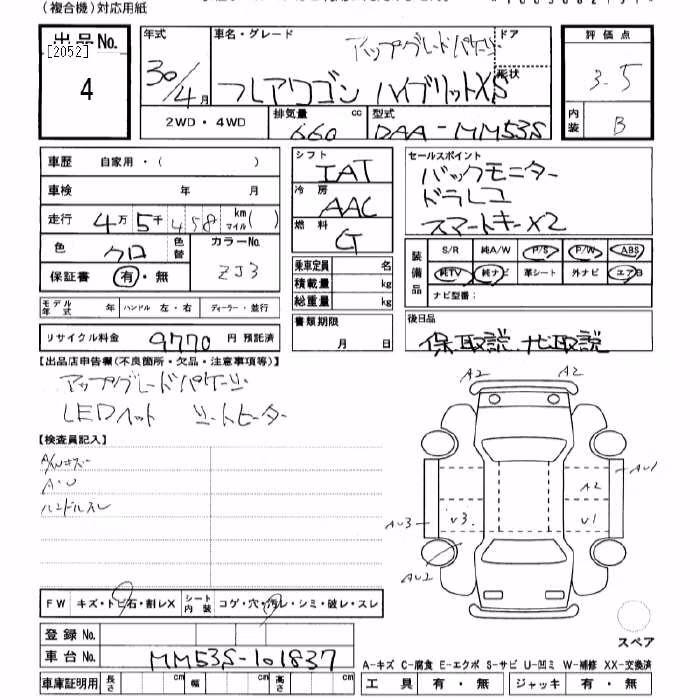 (複合機)対応用紙
出品No.
[2052]
4
年式
30/4月
車名・グレード
アップグレードパケージ
フレアワゴン ハイブリットXS
ドア
形状
評価点
3.5
内装
B
2WD・4WD
排気量 660 cc
型式 DAA-MM53S
車歴 自家用・( )
車検 年 月
走行 4万5千458 km マイル( )
色 クロ 色替
カラーNo. ZJ3
保証書 有・無
モデル年式 年 ハンドル 左・右 ディーラー・並行
リサイクル料金 9770 円 預託済
シフト IAT
冷房 AAC
燃料 G
乗車定員 名
積載量 kg
総重量 kg
書類期限
月 日
セールスポイント
バックモニター
ドラレコ
スマートキーX2
装備品
S/R 純A/W P/S P/W ABS
純TV 純ナビ 革シート 外ナビ エアB
ナビ型番:
後日品
保、取説、ナビ取説
【出品店申告欄(不良箇所・欠品・注意事項等)】
アップグレードパケージ
LEDヘット シートヒーター
【検査員記入】
A/Wキズ
A・U
ハンドルスレ
A2 A2
AU1
A2
AU3 U3 U1
AU2
FW キズ・トビ石・割レX シート内装 コゲ・穴・汚レ・シミ・破レ・スレ
スペア
登録No.
車台No. MM53S-101837
A-キズ C-腐食 E-エクボ S-サビ U-凹ミ W-補修 XX-交換済
車庫証明用 長さ cm 幅 cm 高さ cm
工具 有・無 ジャッキ 有・無